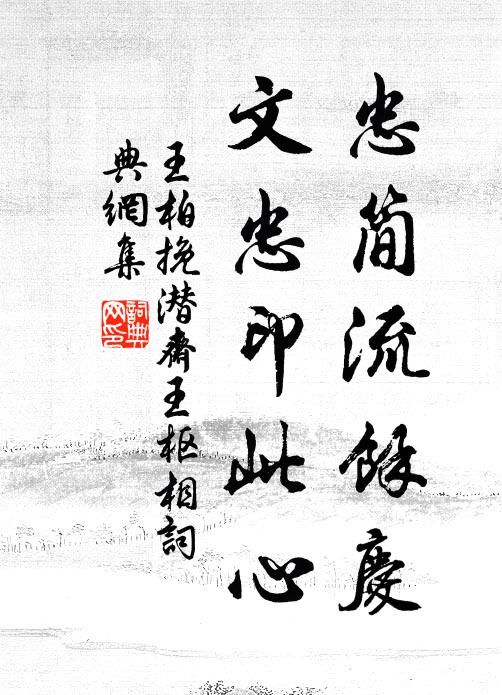 忠簡流餘慶
文忠印此心
王柏挽潜齋王枢相詞
典網集
詞典网印